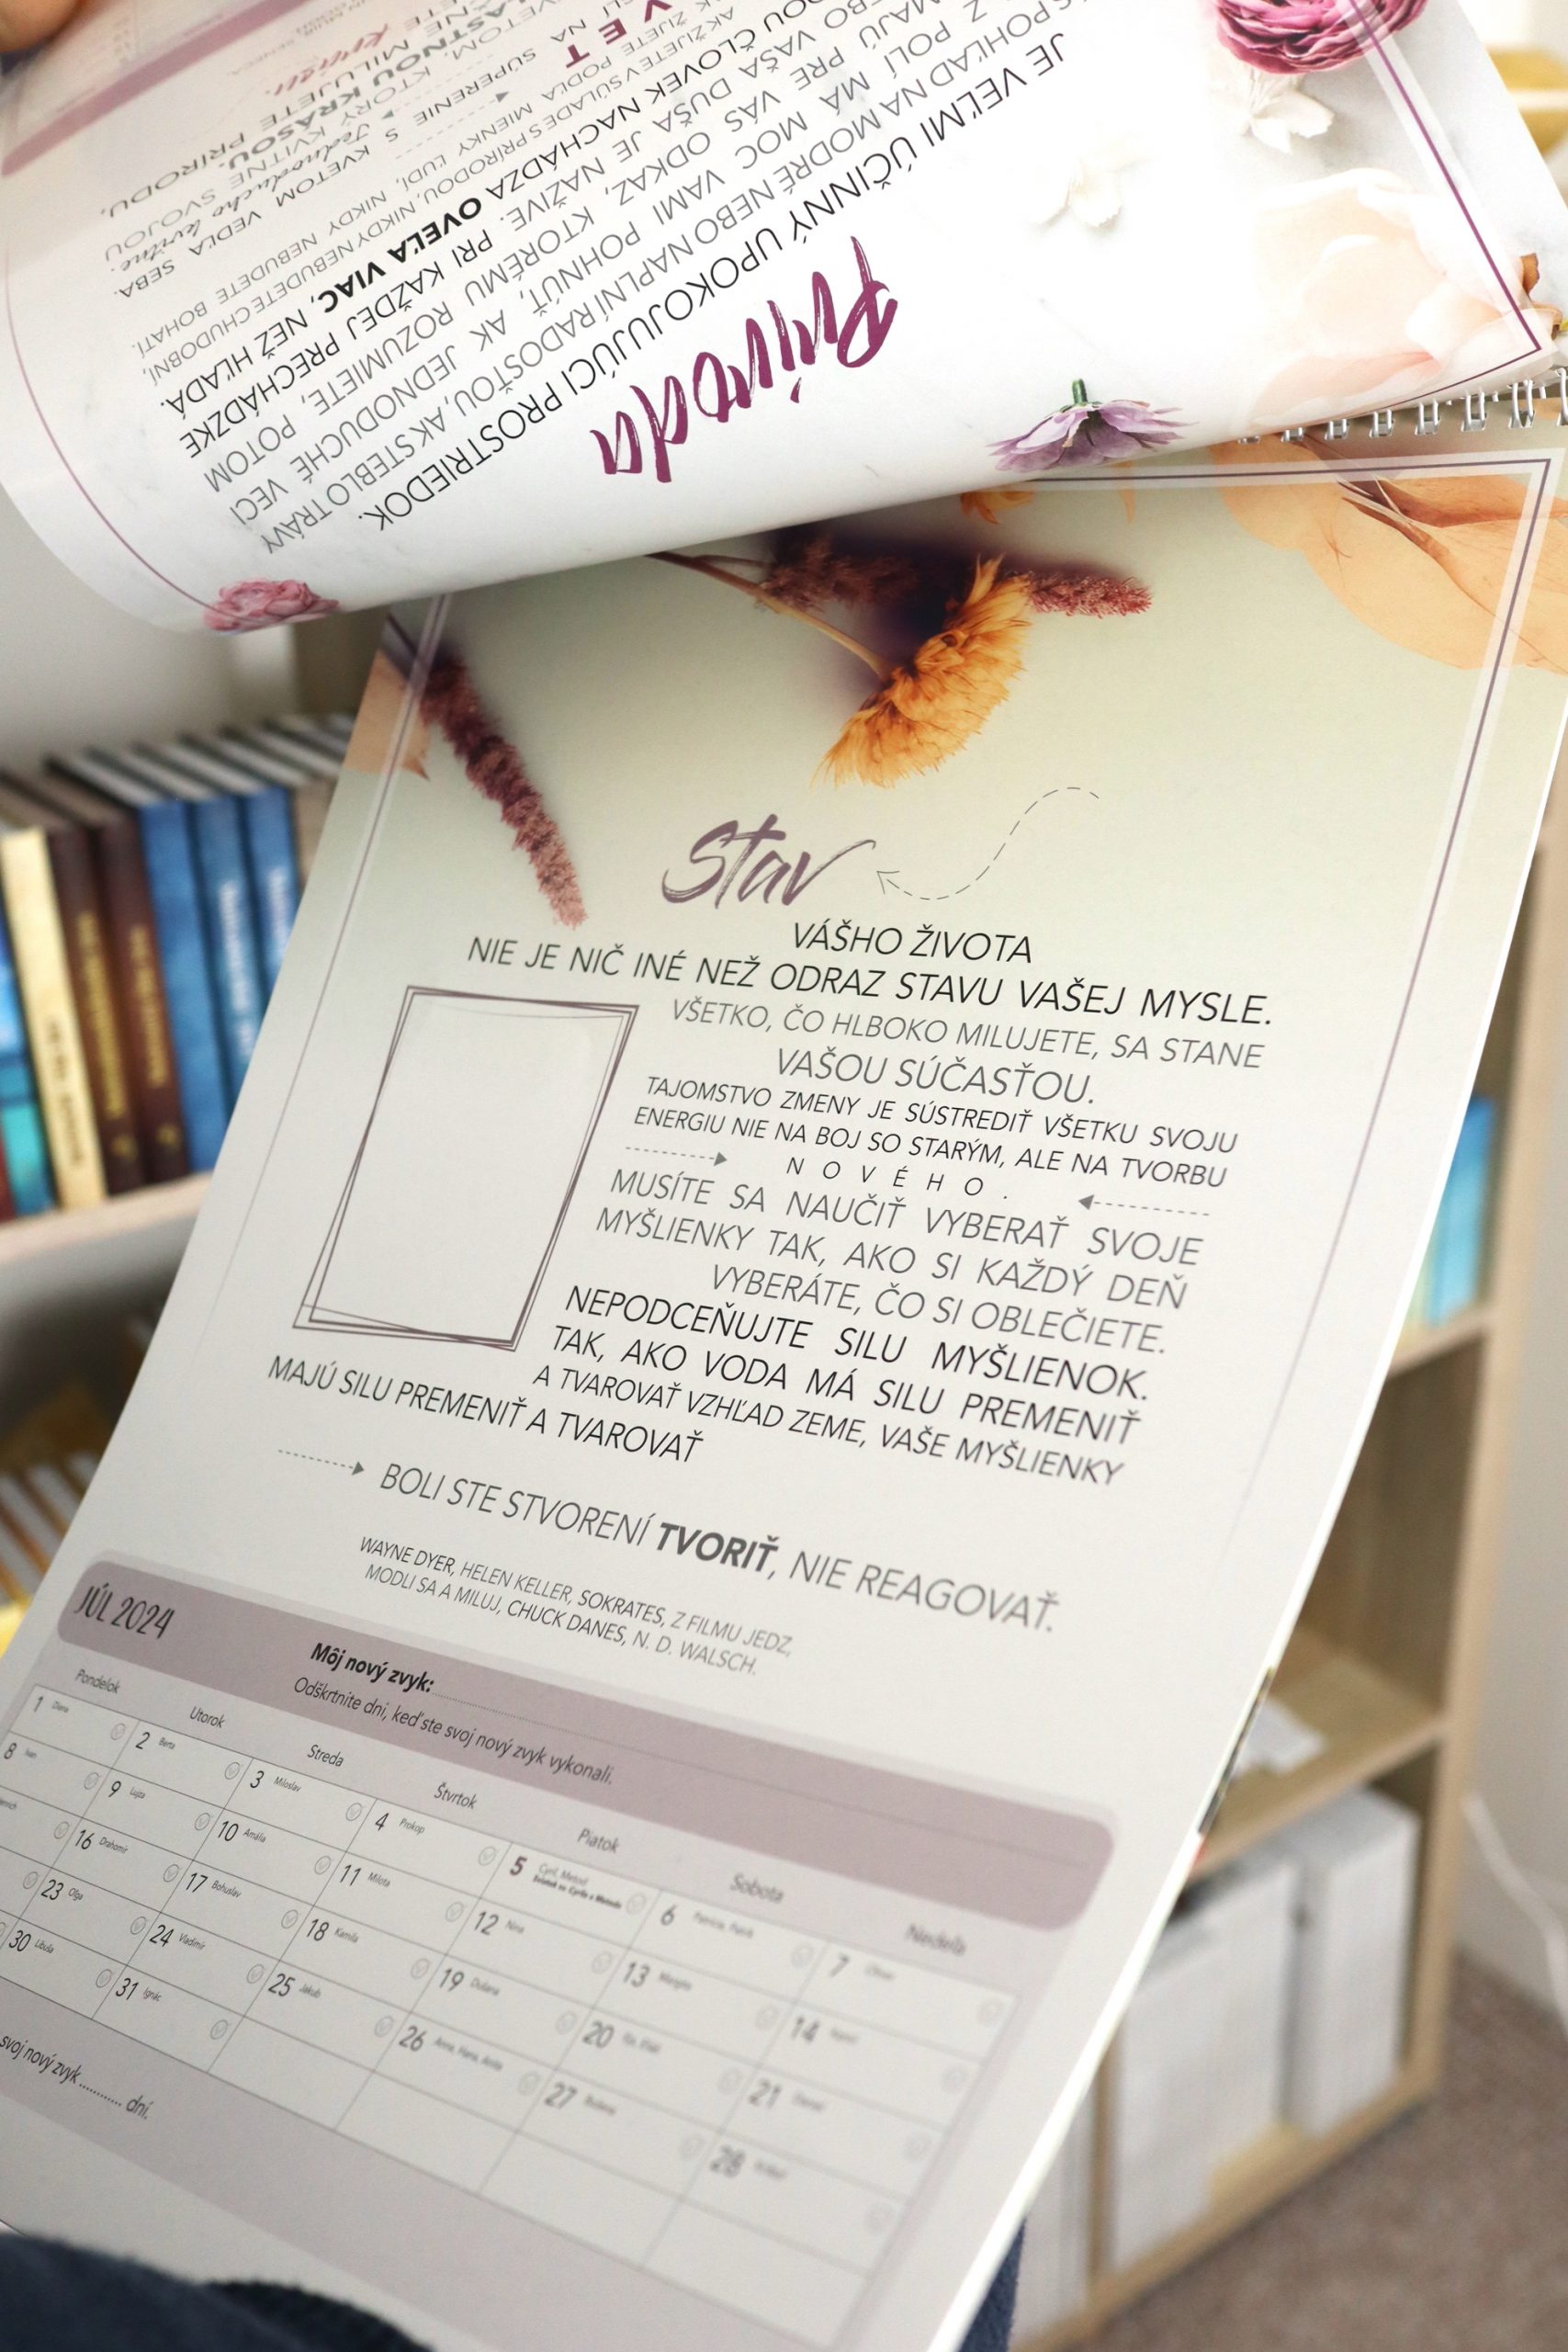 Príroda
JE VEĽMI ÚČINNÝ UPOKOJUJÚCI PROSTRIEDOK.
POHĽAD NA MODRÉ NEBO NAPLNÍ RADOSŤOU, AK STEBLO TRÁVY
MÁ MOC VAMI POHNÚŤ, AK JEDNODUCHÉ VECI
POLÍ
MAJÚ PRE VÁS ODKAZ, KTORÉMU ROZUMIETE, POTOM
VAŠA DUŠA JE NAŽIVE. PRI KAŽDEJ PRECHÁDZKE
ČLOVEK NACHÁDZA OVEĽA VIAC, NEŽ HĽADÁ.
AK ŽIJETE V SÚLADE S PRÍRODOU, NIKDY NEBUDETE CHUDOBNÍ,
AK ŽIJETE PODĽA MIENKY ĽUDÍ, NIKDY NEBUDETE BOHATÍ.
NA SÚPERENIE S KVETOM VEDĽA SEBA.
Jednoducho kvitne.
KTORÝ KVITNE SVOJOU
VLASTNOU KRÁSOU.
MILUJETE PRÍRODU,
Stav
VÁŠHO ŽIVOTA
NIE JE NIČ INÉ NEŽ ODRAZ STAVU VAŠEJ MYSLE.
VŠETKO, ČO HLBOKO MILUJETE, SA STANE
VAŠOU SÚČASŤOU.
TAJOMSTVO ZMENY JE SÚSTREDIŤ VŠETKU SVOJU
ENERGIU NIE NA BOJ SO STARÝM, ALE NA TVORBU
NOVÉHO.
MUSÍTE SA NAUČIŤ VYBERAŤ SVOJE
MYŠLIENKY TAK, AKO SI KAŽDÝ DEŇ
VYBERÁTE, ČO SI OBLEČIETE.
NEPODCEŇUJTE SILU MYŠLIENOK.
TAK, AKO VODA MÁ SILU PREMENIŤ
A TVAROVAŤ VZHĽAD ZEME, VAŠE MYŠLIENKY
MAJÚ SILU PREMENIŤ A TVAROVAŤ
BOLI STE STVORENÍ TVORIŤ, NIE REAGOVAŤ.
WAYNE DYER, HELEN KELLER, SOKRATES, Z FILMU JEDZ,
MODLI SA A MILUJ, CHUCK DANES, N. D. WALSCH.
JÚL 2024
Môj nový zvyk:
Odškrtnite dni, keď ste svoj nový zvyk vykonali.
Pondelok Utorok Streda Štvrtok Piatok Sobota Nedeľa
1 Diana 2 Berta 3 Miloslav 4 Prokop 5 Cyril, Metod 6 Patrícia, Patrik 7 Oliver
8 Ivan 9 Lujza 10 Amália 11 Milota 12 Nina 13 Margita 14 Kamil
16 Drahomír 17 Bohuslav 18 Kamila 19 Dušana 20 21
23 Oľga 24 Vladimír 25 Jakub 26 Anna, Hana, Anita 27 Božena 28
30 Libuša 31 Ignác
svoj nový zvyk.......... dní.